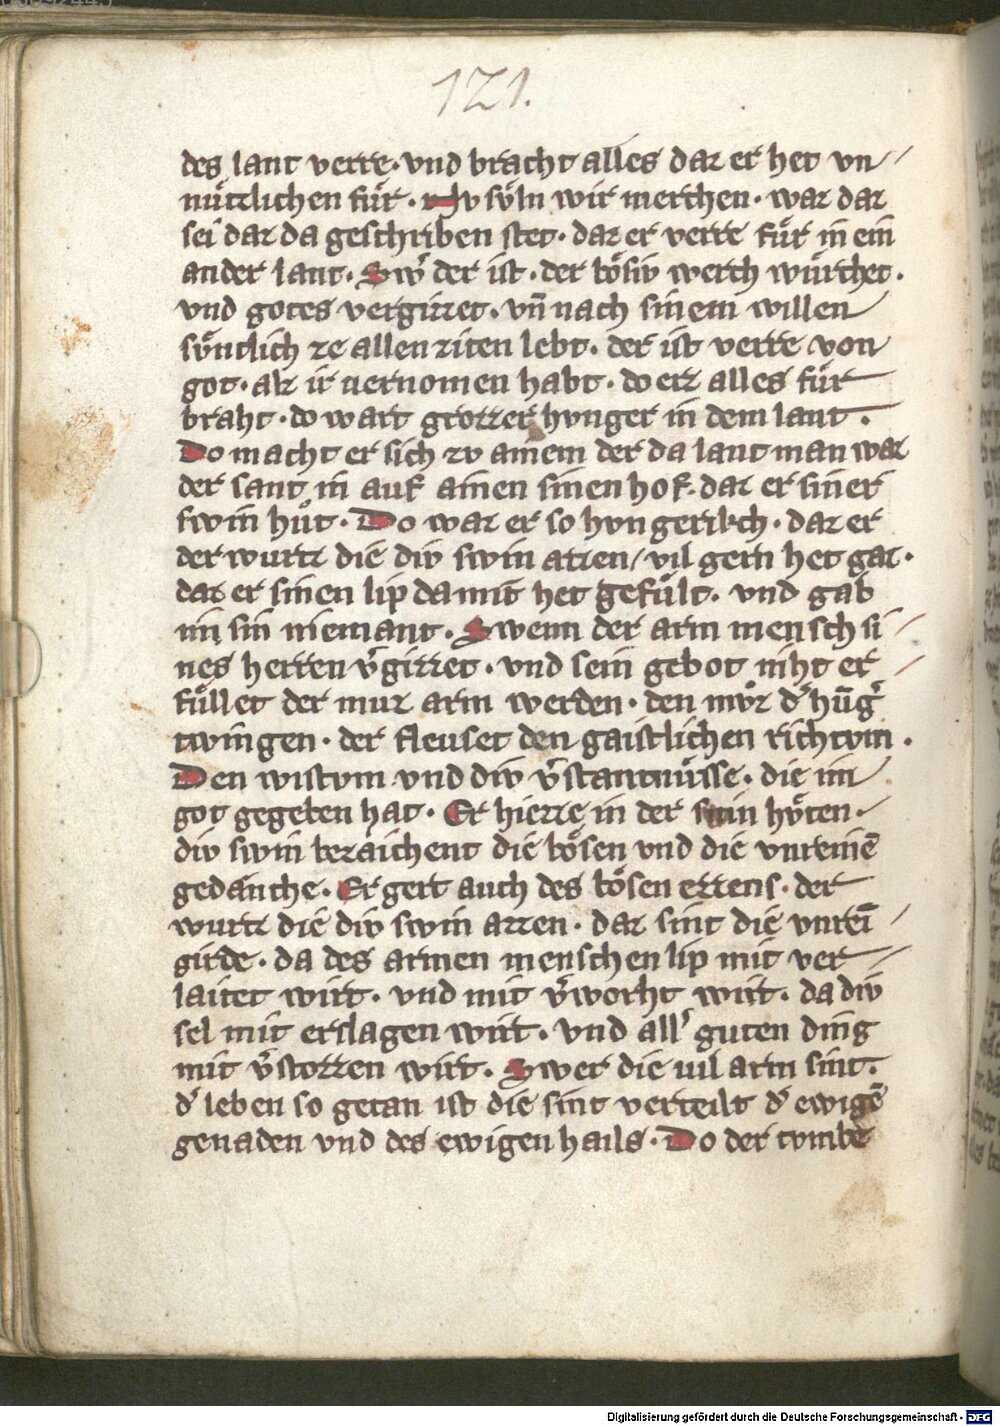 121.
des lant verre· vnd bracht alles daz er het vn/
nuͤtzlichen fuͤr· Nv soͤln wir merchen· waz daz
sei daz da geschriben stet· daz er verre fuͤr in ein
ander lant· Swͤ der ist· der boͤsiv werch wuͤrchet·
vnd gotes vergizzet· vn̄ nach sinem willen
suͤntlich ze allen ziten lebt· der ist verre von
got· alz ir uernomen habt· do erz alles fuͤr
braht· do wart grozzer hvnger in dem lant·
Do macht er sich zv ainem der da lantman waz
der sant in auf ainen sinen hof· daz er siner
swin huͤt· Do waz er so hvngerikch· daz er
der wurtz die div swin azzen/ vil gern het gaz·
daz er sinen lip da mit het gefuͤlt· vnd gab
im sin niemant· Swenn der arm mensch si/
nes herren v͛gizzet· vnd sein gebot niht er/
fuͤllet der muz arm werden· den mvͦz d͛ hūg͛
twingen· der fleuset den gaistlichen richtvm·
Den wistvm vnd div v͛stantnuͤsse· die im
got gegeben hat· Er hiezze in der swin hvͤten·
div swin bezaichent die boͤsen vnd die vnreinē
gedanche· Er gert auch des boͤsen ezzens· der
wurtz die div swin azzen· daz sint die vnreī/
girde· da des armen menschen lip mit ver/
laitet wirt· vnd mit v͛worht wirt· da div
sel mit erslagen wirt· vnd all͛ guten ding
mit v͛stozzen wirt· Swer die uil arm sint·
d͛ leben so getan ist die sint verteilt d͛ ewigē
genaden vnd des ewigen hails· Do der tvmbe
Digitalisierung gefördert durch die Deutsche Forschungsgemeinschaft - DFG